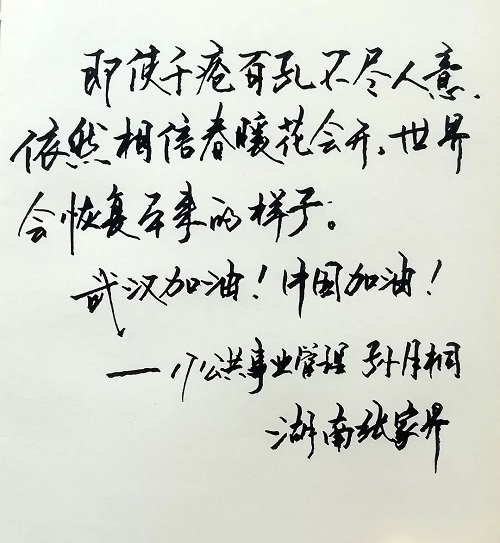 即使千疮百孔不尽人意.
依然相信春暖花会开,世界
会恢复原来的样子。
武汉加油!中国加油!
——17公共事业管理 孙月桐
湖南张家界